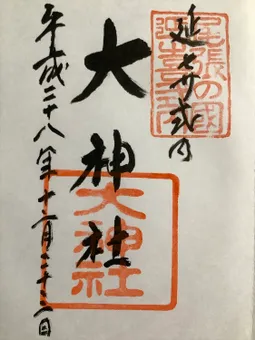 尾張の國
延喜式内
大神社
大神社
平成二十八年十一月二十三日